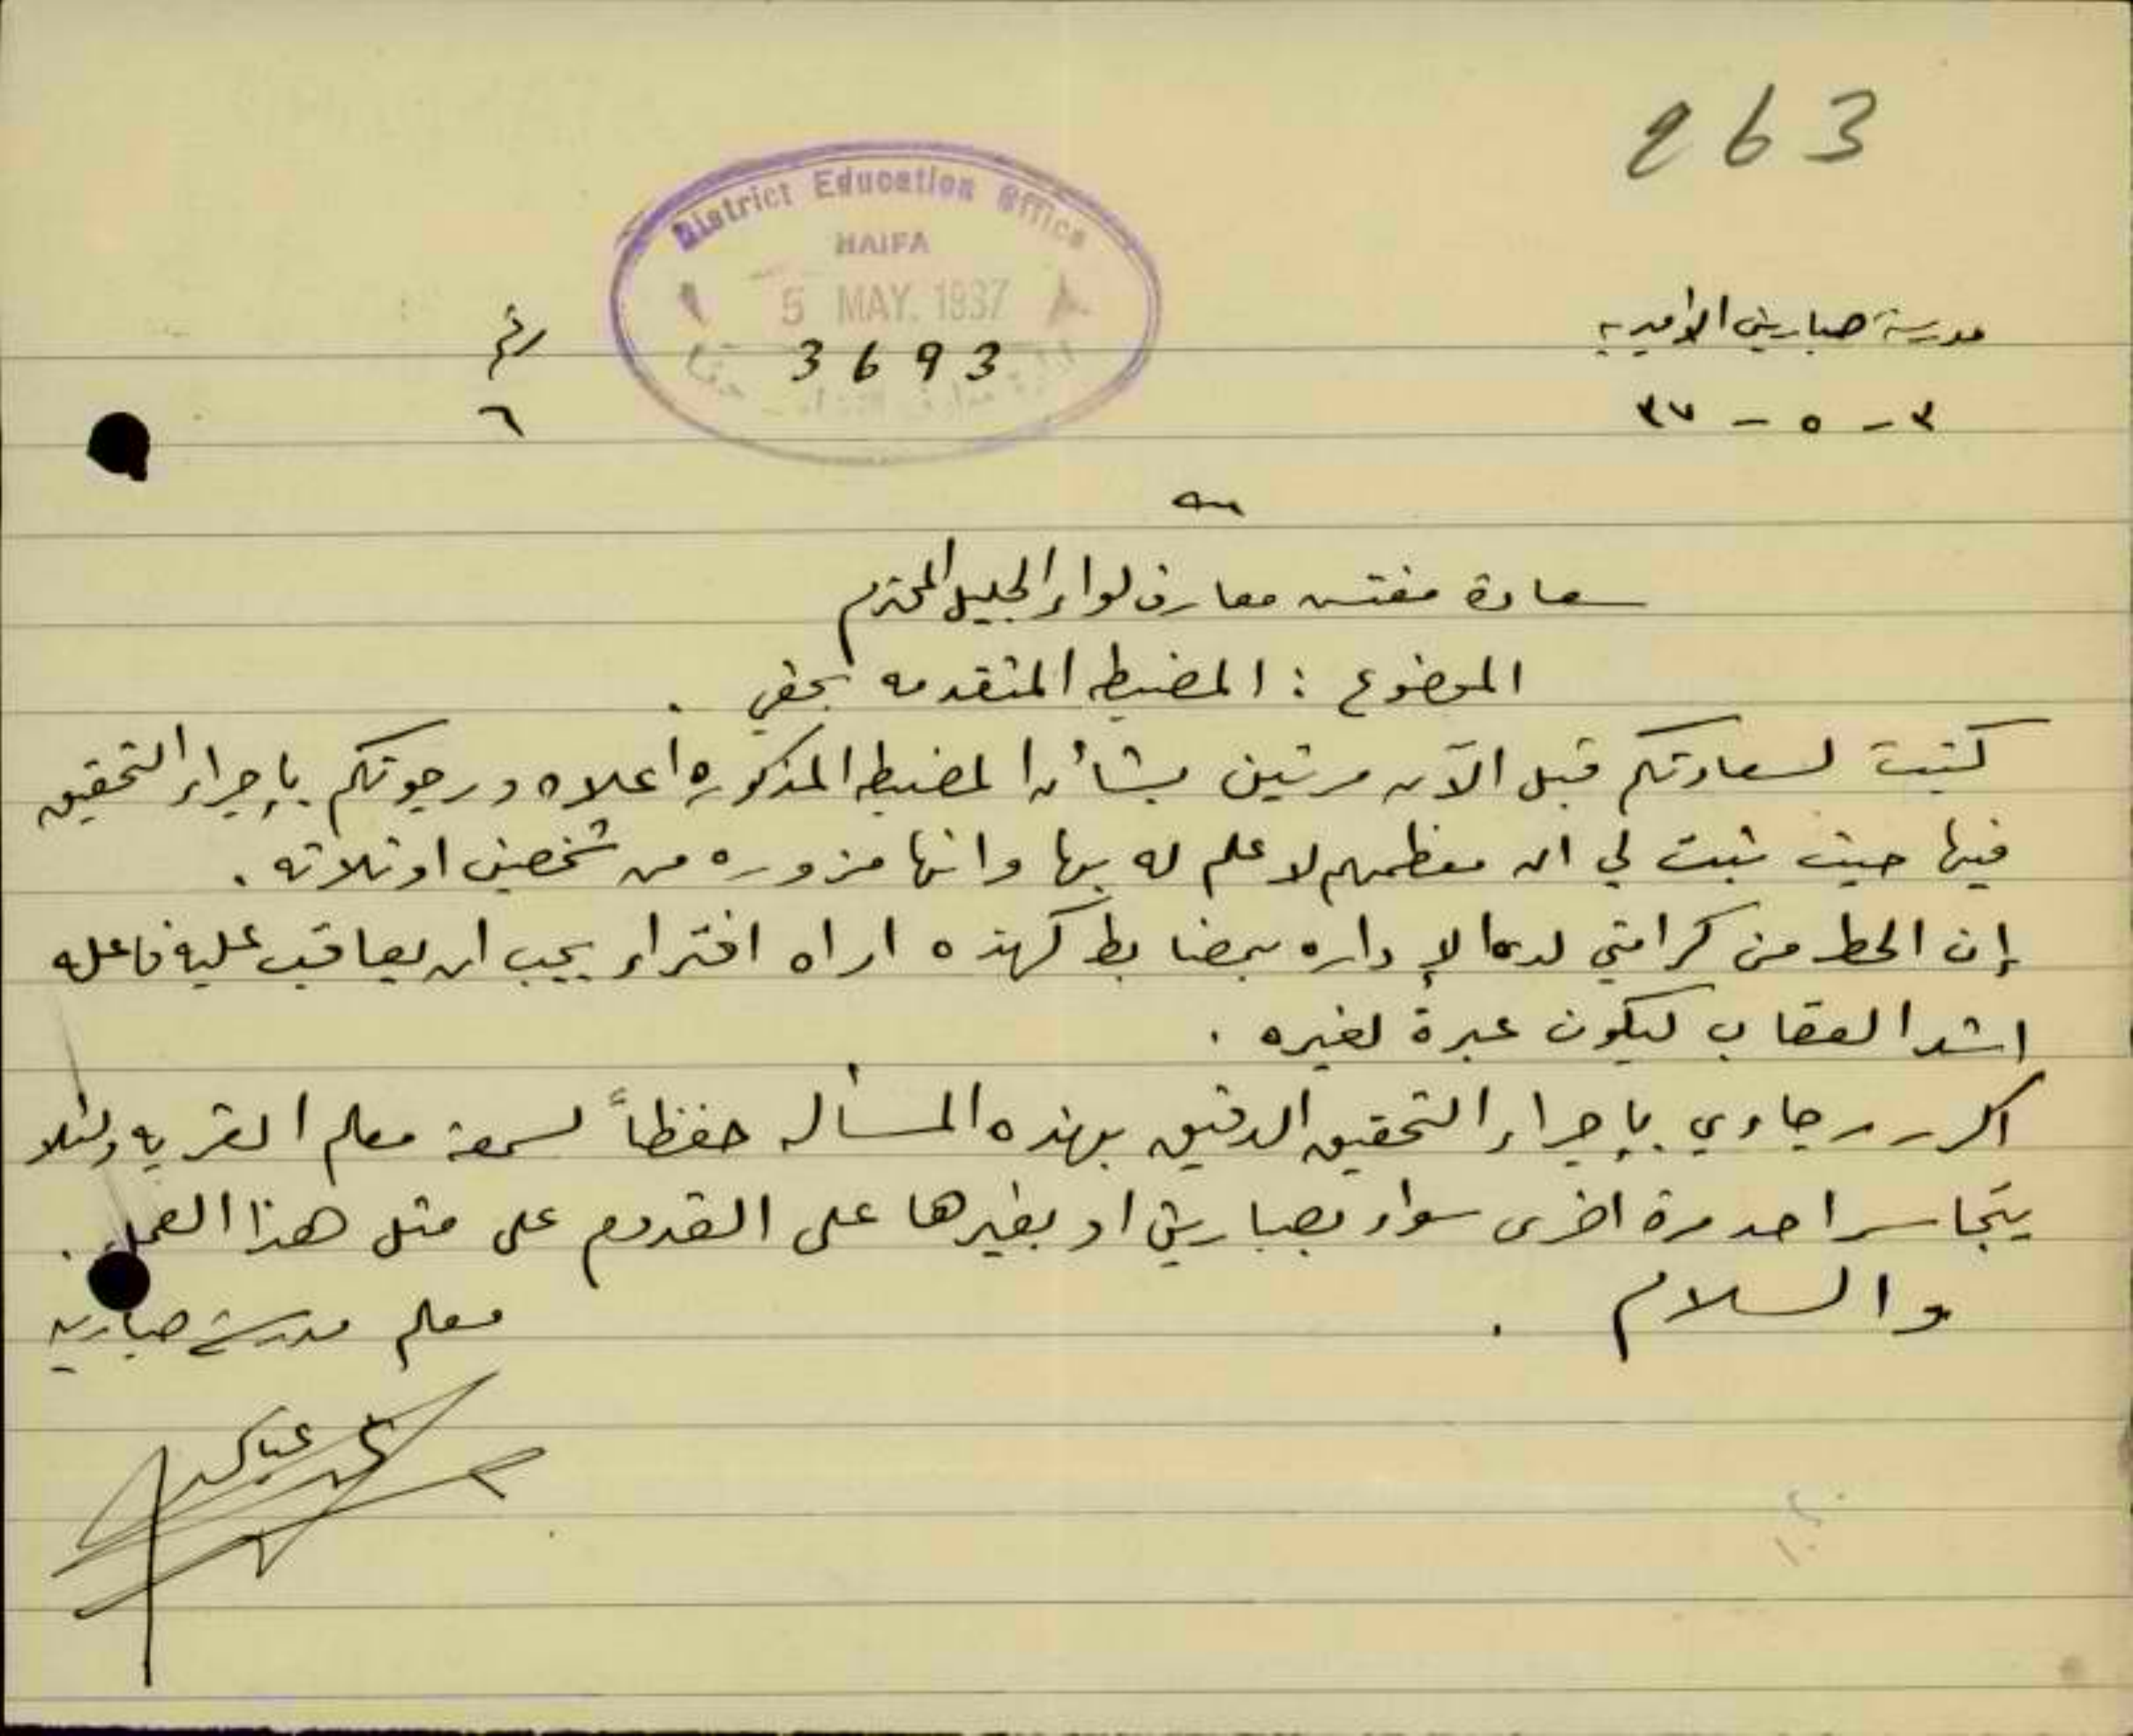 263
District Education Office
HAIFA
5 MAY. 1937
3693
مدرسة صبارين الاميريه
٣ - ٥ - ٣٧
رقم
٦
سعادة مفتش معارف لواء الجليل المحترم
الموضوع : المضبطه المتقدمه بحقي .
كتبت لسعادتكم قبل الآن مرتين بشأن المضبطه المذكوره أعلاه ورجوتكم بإجراء التحقيق
فيها حيث ثبت لي ان معظمهم لا علم له بها وانها مزوره من شخصين او ثلاثه .
إن الحط من كرامتي لدى الإداره بمضابط كهذه اراه افتراء يجب ان يعاقب عليه فاعله
اشد العقاب ليكون عبرة لغيره .
اكرر رجاوي بإجراء التحقيق الدقيق بهذه المسأله حفظاً لسمعة معلم القريه ولئلا
يتجاسر احد مرة اخرى سواء بصبارين او بغيرها على القدوم على مثل هذا العمل .
والسلام .
معلم مدرسة صبارين